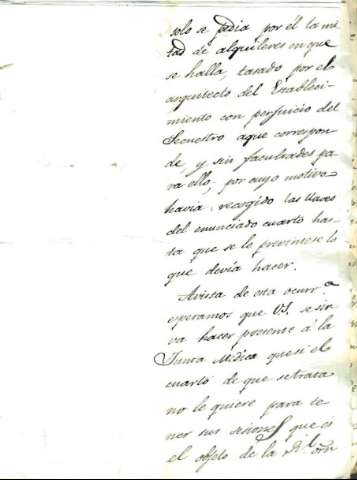 solo se pedia por él la mi
tad de alquileres en que
se halla, tasado por el
arquitecto del Estableci-
miento con perjuicio del
Secuestro aque correspon
de, y sin facultades pa
ra ello; por cuyo motivo
havia recogido las llaves
del enunciado cuarto has-
ta que se le previniese lo
que devía hacer.
Avista de esta ocurr.a
esperamos que VS. se sir
va hacer presente á la
Junta Medica que si el
cuarto de que se trata
no le quiere para te
ner sus sesiones que es
el objeto de la Rl. orn